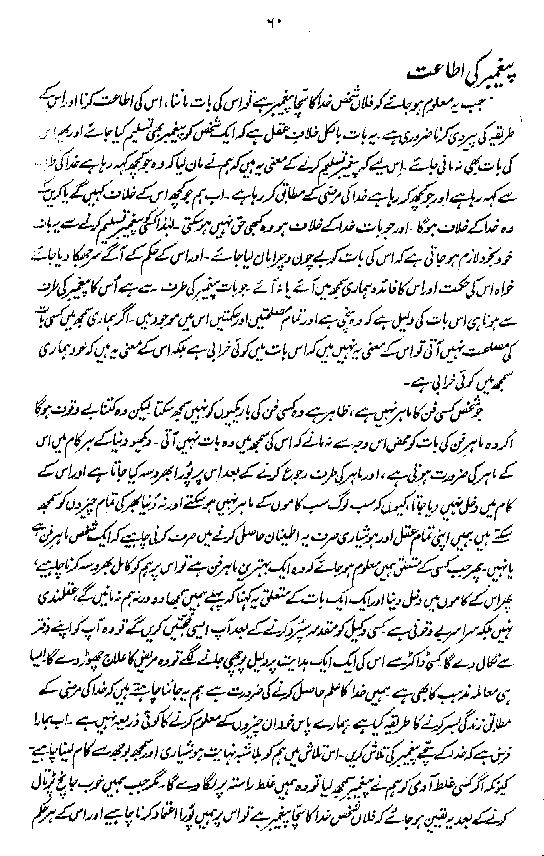 ۶۰
پیغمبر کی اطاعت
جب یہ معلوم ہو جائے کہ فلاں شخص خدا کا سچا پیغمبر ہے تو اس کی بات ماننا، اس کی اطاعت کرنا اور اس کے
طریقہ کی پیروی کرنا ضروری ہے۔ یہ بات بالکل خلافِ عقل ہے کہ ایک شخص کو پیغمبر بھی تسلیم کیا جائے اور پھر اس
کی بات بھی نہ مانی جائے۔ اس لیے کہ پیغمبر تسلیم کرنے کے معنی یہ ہیں کہ ہم نے مان لیا کہ وہ جو کچھ کہہ رہا ہے خدا کی طرف
سے کہہ رہا ہے اور جو کچھ کر رہا ہے خدا کی مرضی کے مطابق کر رہا ہے۔ اب ہم جو کچھ اس کے خلاف کہیں گے یا کریں گے
وہ خدا کے خلاف ہوگا۔ اور جو بات خدا کے خلاف ہو وہ کبھی حق نہیں ہو سکتی۔ لہٰذا کسی کو پیغمبر تسلیم کرنے سے یہ بات
خود بخود لازم ہو جاتی ہے کہ اس کی بات کو بے چون و چرا مان لیا جائے۔ اور اس کے حکم کے آگے سر جھکا دیا جائے
خواہ اس کی حکمت اور اس کا فائدہ ہماری سمجھ میں آئے یا نہ آئے۔ جو بات پیغمبر کی طرف سے ہے اُس کا پیغمبر کی طرف
سے ہونا ہی اس بات کی دلیل ہے کہ وہ سچی ہے اور تمام مصلحتیں اور حکمتیں اس میں موجود ہیں۔ اگر ہماری سمجھ میں کسی بات
کی مصلحت نہیں آتی تو اس کے معنی یہ نہیں ہیں کہ اس بات میں کوئی خرابی ہے بلکہ اس کے معنی یہ ہیں کہ خود ہماری
سمجھ میں کوئی خرابی ہے۔
جو شخص کسی فن کا ماہر نہیں ہے، ظاہر ہے وہ کسی فن کی باریکیوں کو نہیں سمجھ سکتا لیکن وہ کتنا بے وقوف ہوگا
اگر وہ ماہرِ فن کی بات کو محض اس وجہ سے نہ مانے کہ اس کی سمجھ میں وہ بات نہیں آتی۔ دیکھو دنیا کے ہر کام میں اس
کے ماہر کی ضرورت ہوتی ہے، اور ماہر کی طرف رجوع کرنے کے بعد اس پر پورا بھروسہ کیا جاتا ہے اور اس کے
کام میں دخل نہیں دیا جاتا، کیوں کہ سب لوگ سب کاموں کے ماہر نہیں ہو سکتے اور نہ دنیا بھر کی تمام چیزوں کو سمجھ
سکتے ہیں ہمیں اپنی تمام عقل اور ہوشیاری صرف یہ اطمینان حاصل کرنے میں صرف کرنی چاہیے کہ ایک شخص ماہرِ فن ہے
یا نہیں پھر جب کسی کے متعلق ہمیں معلوم ہو جائے کہ وہ ایک بہترین ماہرِ فن ہے تو اس پر ہم کو کامل بھروسہ کرنا چاہیے،
پھر اس کے کاموں میں دخل دینا اور ایک ایک بات کے متعلق یہ کہنا کہ پہلے ہمیں سمجھا دو ورنہ ہم نہ مانیں گے، عقلمندی
نہیں بلکہ سراسر بے وقوفی ہے کسی وکیل کو مقدمہ سپرد کرنے کے بعد آپ ایسی حجتیں کریں گے تو وہ آپ کو اپنے دفتر
سے نکال دے گا کسی ڈاکٹر سے اس کی ایک ایک ہدایت پر دلیل پوچھی جانے لگے تو وہ مریض کا علاج چھوڑ دے گا ایسا
ہی معاملہ مذہب کا بھی ہے ہمیں خدا کا علم حاصل کرنے کی ضرورت ہے ہم یہ جاننا چاہتے ہیں کہ خدا کی مرضی کے
مطابق زندگی بسر کرنے کا طریقہ کیا ہے ہمارے پاس خود ان چیزوں کے معلوم کرنے کا کوئی ذریعہ نہیں ہے۔ اب ہمارا
فرض ہے کہ خدا کے سچے پیغمبر کی تلاش کریں۔ اس تلاش میں ہم کو بلاشبہ نہایت ہوشیاری اور سمجھ بوجھ سے کام لینا چاہیے
کیونکہ اگر کسی غلط آدمی کو ہم نے پیغمبر سمجھ لیا تو وہ ہمیں غلط راستہ پر لگا دے گا۔ مگر جب ہمیں خوب جانچ پڑتال
کرنے کے بعد یہ یقین ہو جائے کہ فلاں شخص خدا کا سچا پیغمبر ہے تو اس پر ہمیں پورا اعتماد کرنا چاہیے اور اس کے ہر حکم